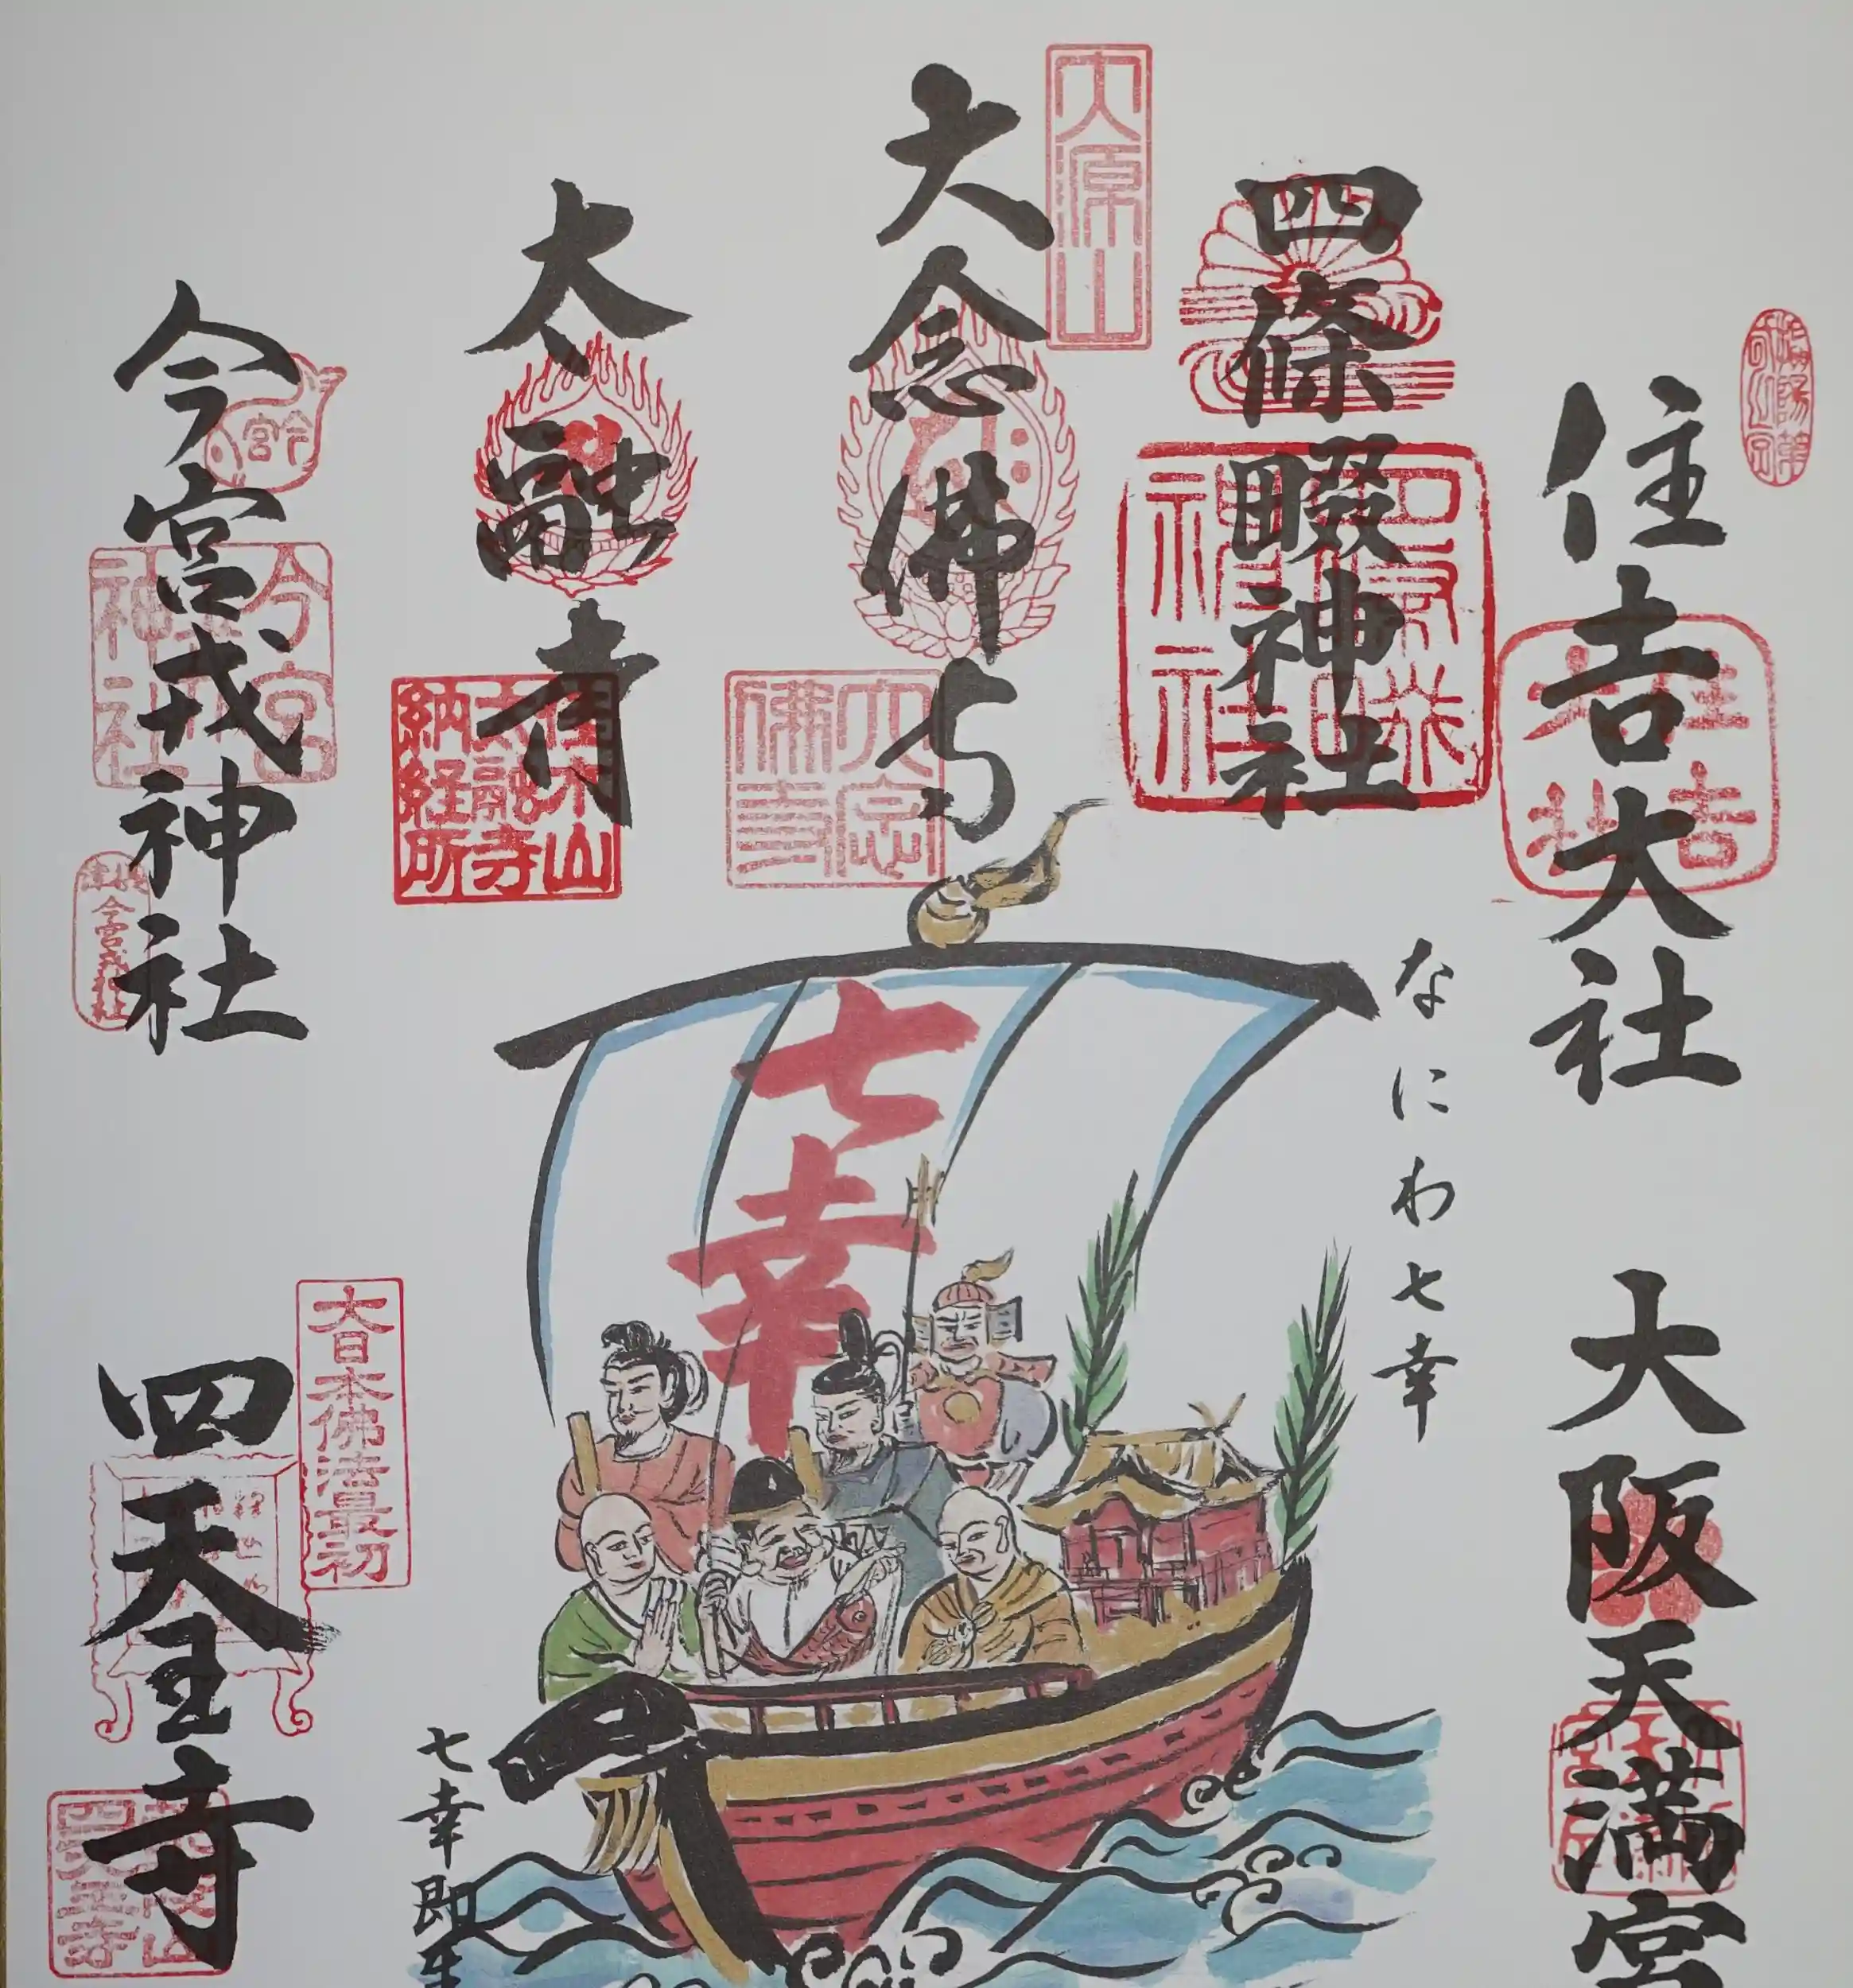 住吉大社
大阪天満宮
四條畷神社
大源山
大念佛寺
大念
佛寺
太融寺
佳木山
太融寺
納経所
今宮戎神社
今宮
神社
四天王寺
大日本佛法最初
なにわ七幸
七幸
七幸即生